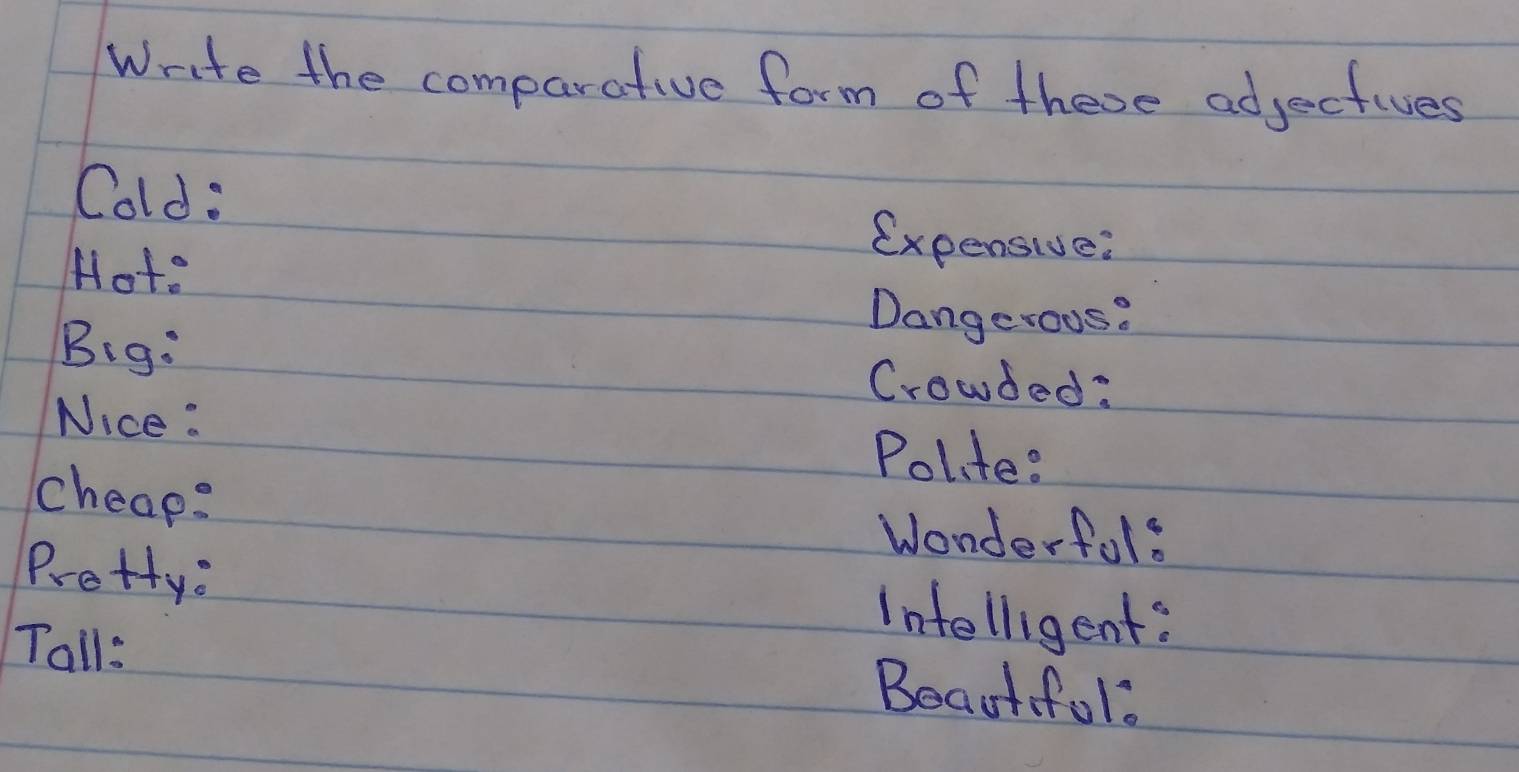 Write the comparative form of these adjectives
Cold:
Hot:
Big:
Nice:
Cheap:
Pretty:
Tall:
Expensive:
Dangerous:
Crowded:
Polite:
Wonderful:
Intelligent:
Beautiful: